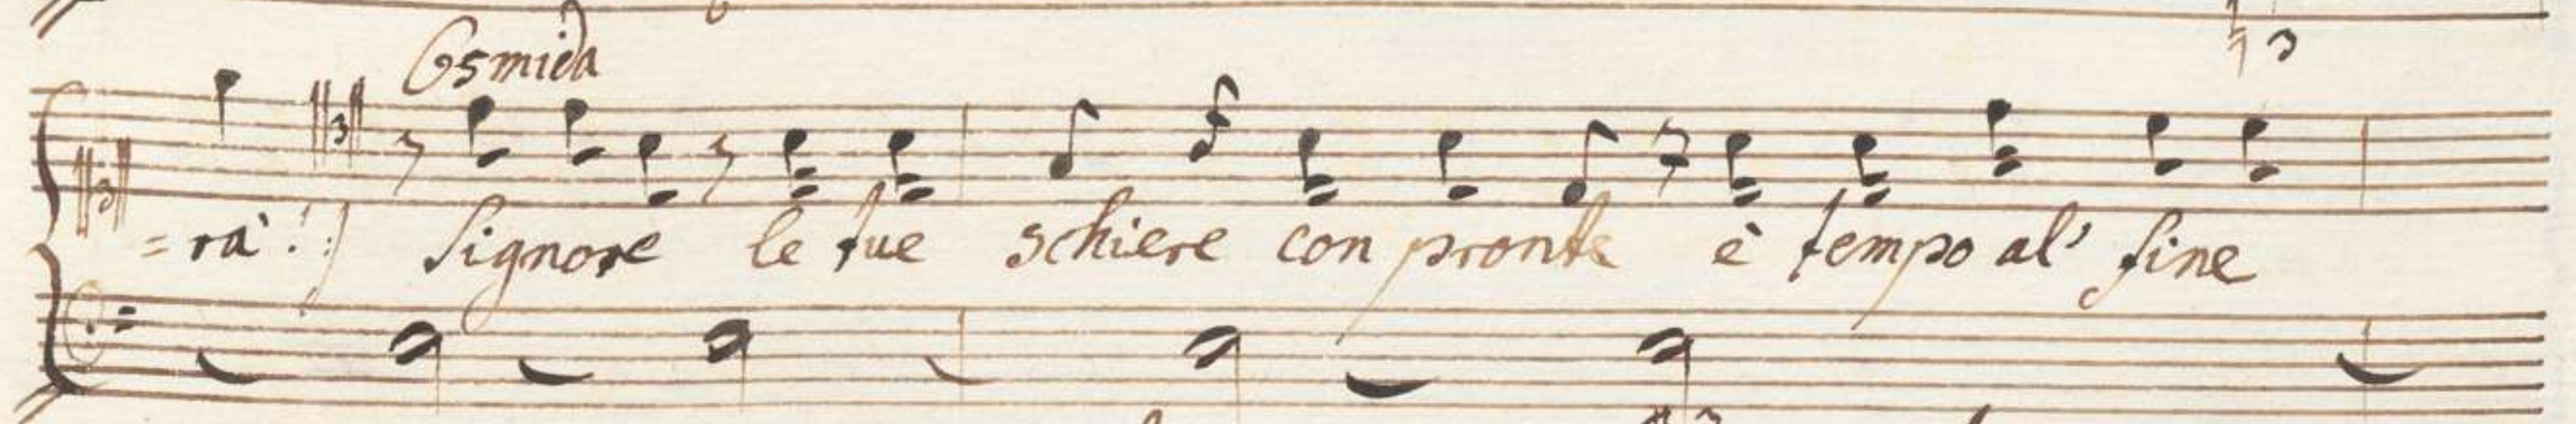 Osmida
=rà!:) Signore le tue schiere con pronte è tempo al' fine